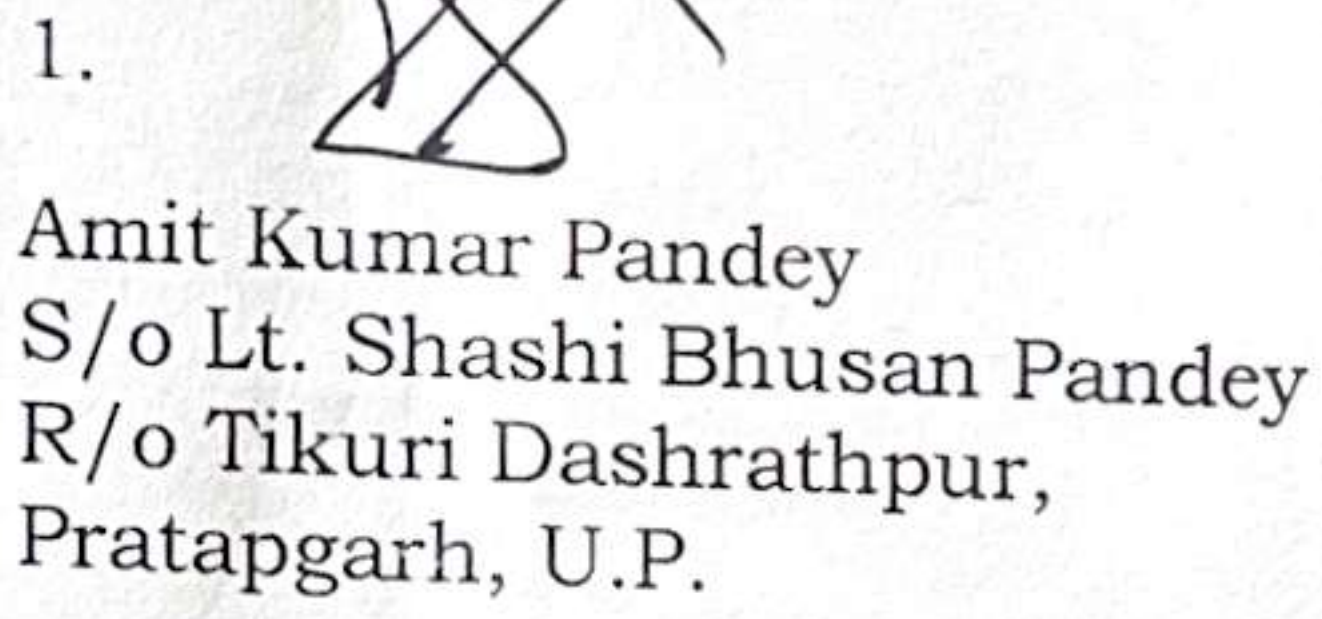 1.
Amit Kumar Pandey
S/o Lt. Shashi Bhusan Pandey
R/o Tikuri Dashrathpur,
Pratapgarh, U.P.